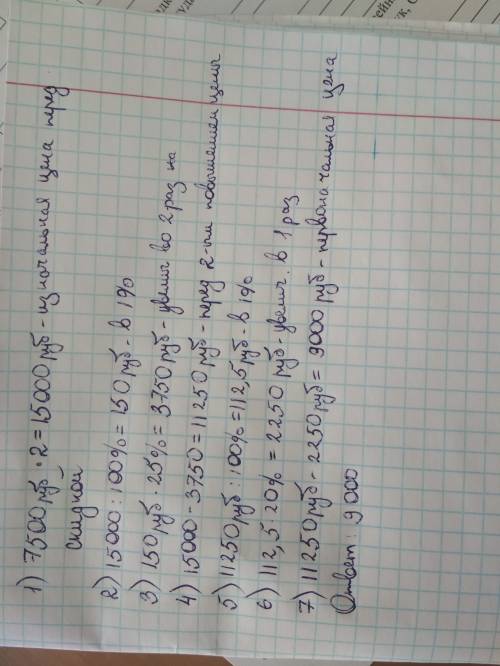 1) 7500руб · 2 = 15000руб - изначальная цена перед
скидкой
2) 15000 : 100% = 150руб - в 1%
3) 150руб · 25% = 3750руб - увелич во 2 раз на
4) 15000 - 3750 = 11250руб - перед 2-ым повышением цены
5) 11250руб : 100% = 112,5руб - в 1%
6) 112,5 20% = 2250руб - увелич. в 1 раз
7) 11250руб - 2250руб = 9000руб - первоначальная цена
Ответ: 9000